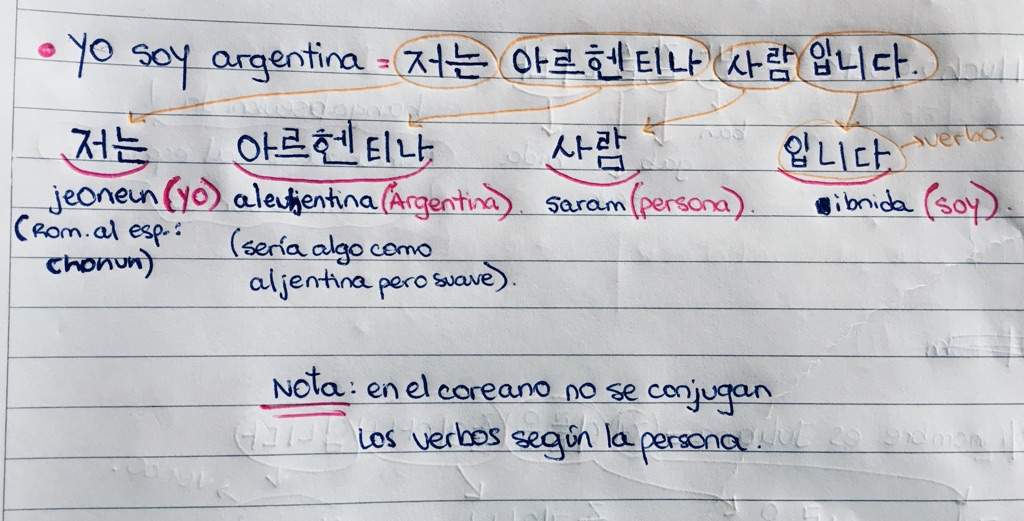 • Yo soy argentina = 저는 아르헨티나 사람입니다.
저는 아르헨티나 사람 입니다 →verbo.
jeoneun (yo) aleuhjentina (Argentina). saram (persona). ibnida (soy).
(Rom. al esp.: (sería algo como
chonun) aljentina pero suave).
Nota: en el coreano no se conjugan
los verbos según la persona.